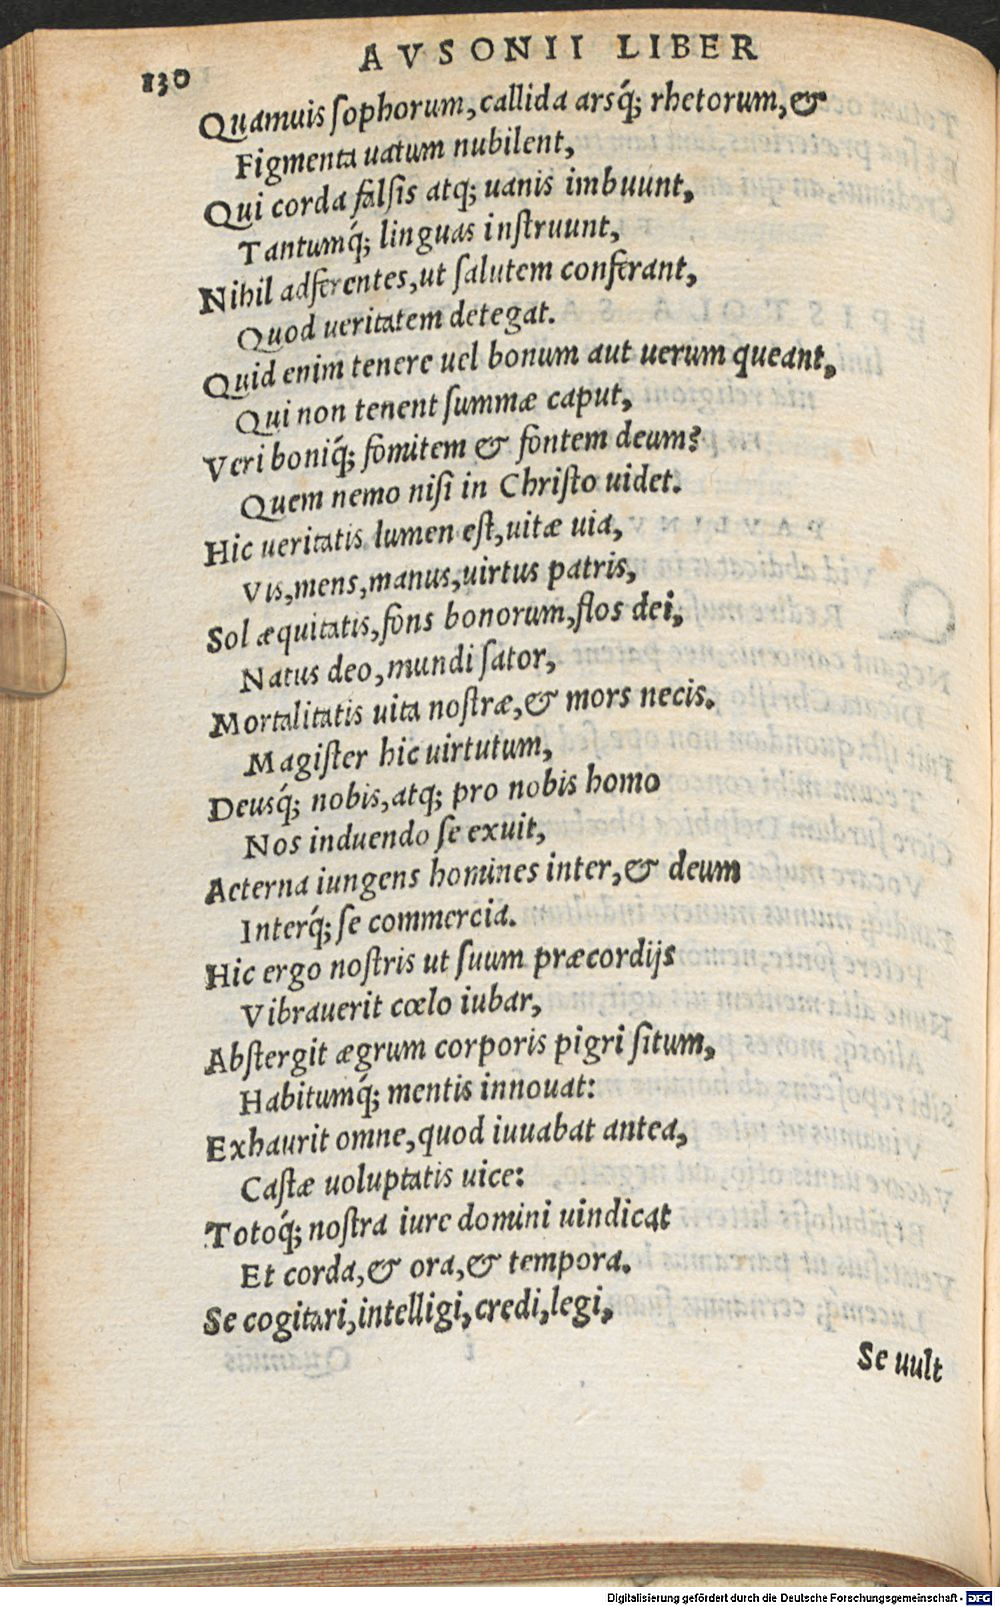 130
AVSONII LIBER
Quamuis ſophorum, callida arsq́; rhetorum, &
Figmenta uatum nubilent,
Qui corda falſis atq; uanis imbuunt,
Tantumq́; linguas inſtruunt,
Nihil adferentes, ut ſalutem conferant,
Quod ueritatem detegat.
Quid enim tenere uel bonum aut uerum queant,
Qui non tenent ſummæ caput,
Veri boniq́; fomitem & fontem deum?
Quem nemo niſi in Chriſto uidet.
Hic ueritatis lumen eſt, uitæ uia,
Vis, mens, manus, uirtus patris,
Sol æquitatis, fons bonorum, flos dei,
Natus deo, mundi ſator,
Mortalitatis uita noſtræ, & mors necis.
Magiſter hic uirtutum,
Deusq́; nobis, atq; pro nobis homo
Nos induendo ſe exuit,
Aeterna iungens homines inter, & deum
Interq́; ſe commercia.
Hic ergo noſtris ut ſuum præcordijs
Vibrauerit cœlo iubar,
Abſtergit ægrum corporis pigri ſitum,
Habitumq́; mentis innouat:
Exhaurit omne, quod iuuabat antea,
Caſtæ uoluptatis uice:
Totoq́; noſtra iure domini uindicat
Et corda, & ora, & tempora.
Se cogitari, intelligi, credi, legi,
Se uult
Digitalisierung gefördert durch die Deutsche Forschungsgemeinschaft - DFG